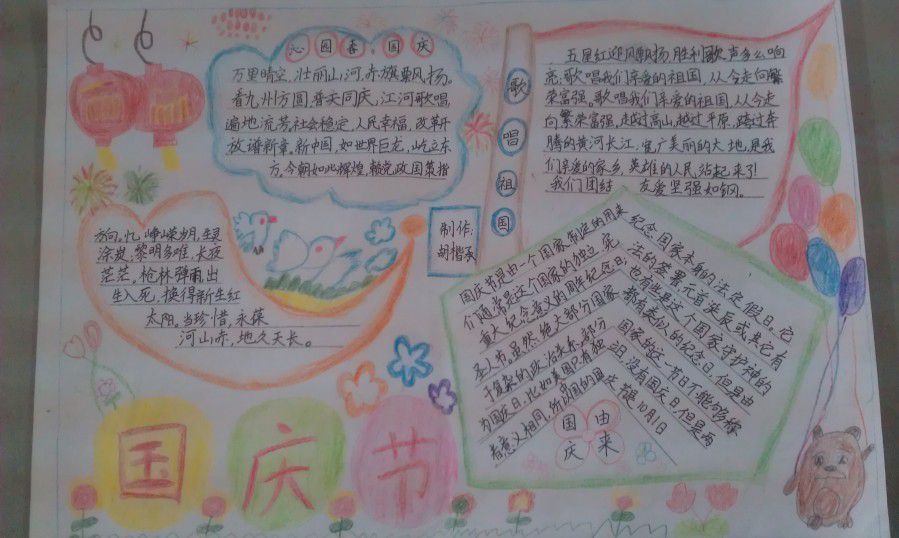 沁园春:国庆
万里晴空,壮丽山河,赤旗飘扬。
看九州方圆,普天同庆,江河歌唱,
遍地流芳,社会稳定,人民幸福,改革开
放谱新章。新中国,如世界巨龙,屹立东
方,今朝如此辉煌,赖党政国策指
方向。忆峥嵘岁月,生灵
涂炭,黎明多难,长夜
茫茫。枪林弹雨,出
生入死,换得新生红
太阳。当珍惜,永葆
河山赤,地久天长。
歌唱祖国
五星红迎风飘扬,胜利歌声多么响
亮,歌唱我们亲爱的祖国,从今走向繁
荣富强。歌唱我们亲爱的祖国,从今走
向繁荣富强,越过高山,越过平原,跨过奔
腾的黄河长江,宽广美丽的大地,是我
们亲爱的家乡,英雄的人民站起来了
我们团结 友爱坚强如钢。
制作:
国庆由来
国庆节是由一个国家制定的用来纪念国家本身的法定假日。它
们通常是这个国家的独立、宪法的签署元首诞辰或其它有
重大纪念意义的周年纪念日,也有些是这个国家守护神的
圣人节。虽然绝大部分国家都有类似的纪念日,但是由
于复杂的政治关系,部分国家的这一节日不能够称
为国庆日,比如美国只有独立日,没有国庆日,但是两
者意义相同,所以我国的国庆节是10月1日
国庆节